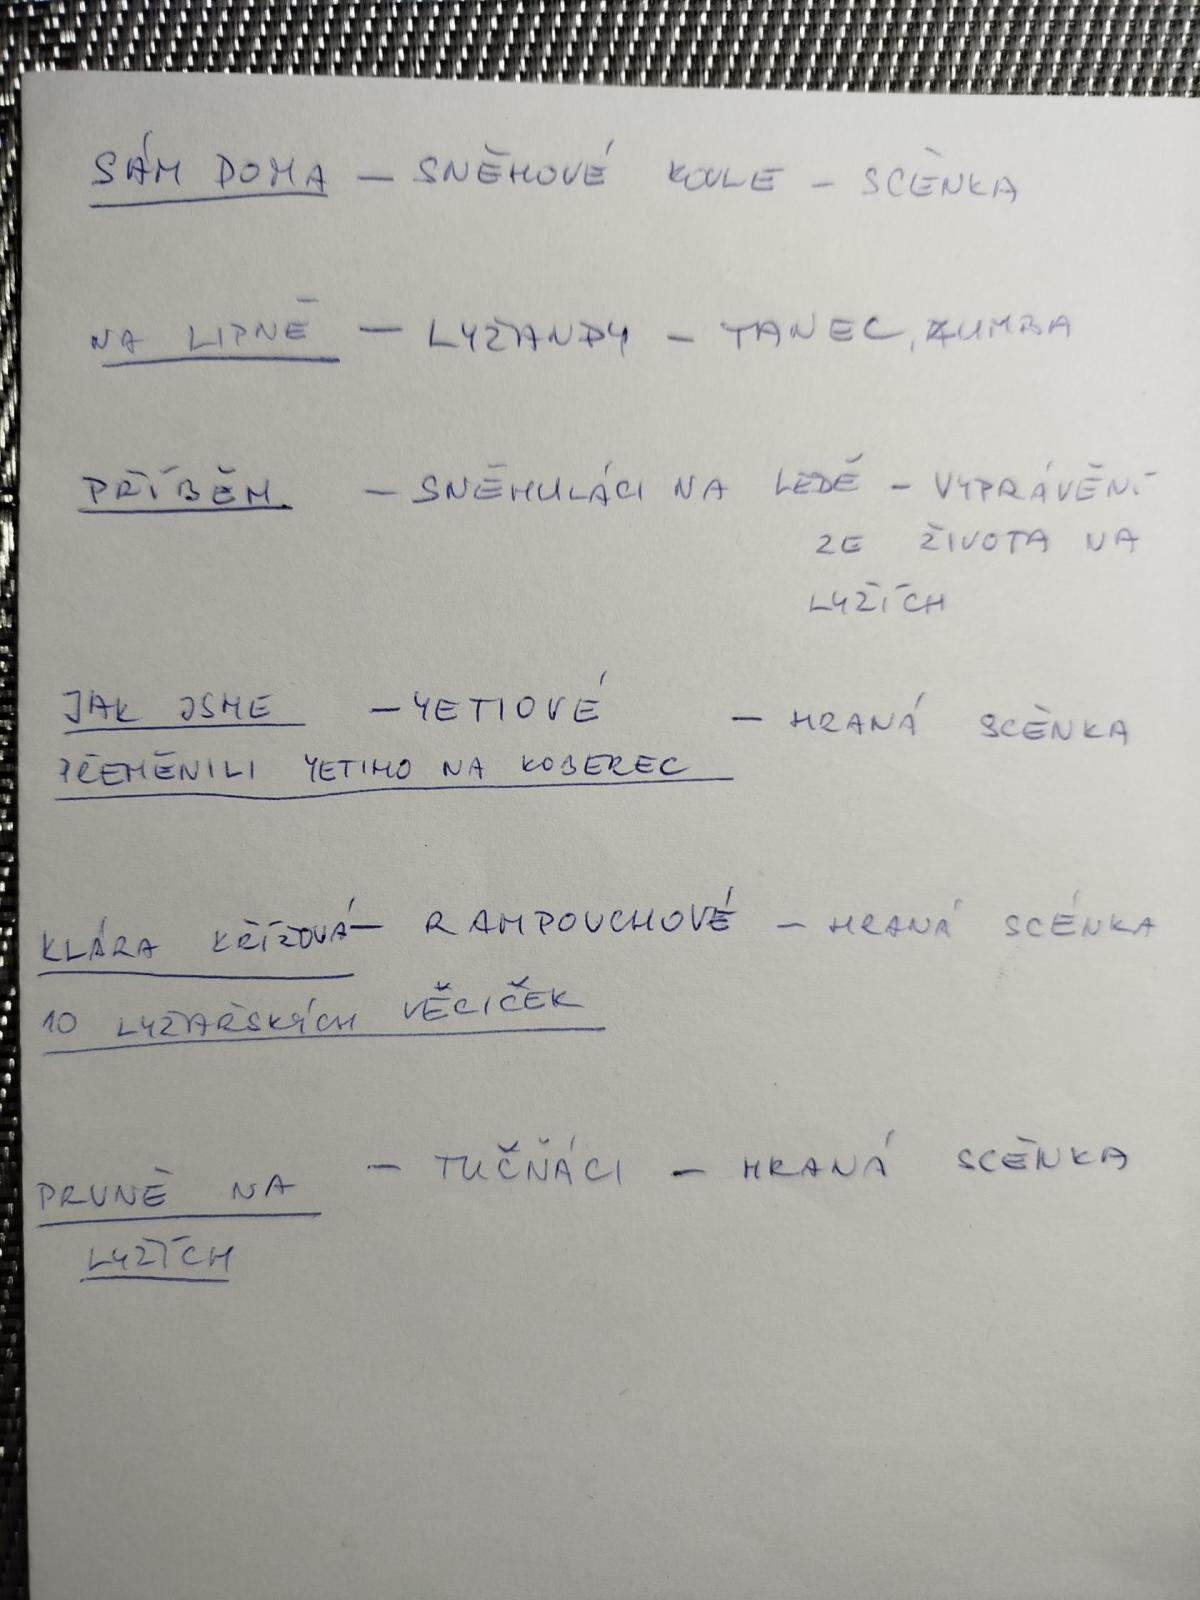 SÁM DOMA – SNĚHOVÉ KOULE – SCÉNKA
NA LIPNĚ – LYŽANDY – TANEC, ZUMBA
PŘÍBĚH – SNĚHULÁCI NA LEDĚ – VYPRÁVĚNÍ
ZE ŽIVOTA NA
LYŽÍCH
JAK JSME – YETIOVÉ – HRANÁ SCÉNKA
PŘEMĚNILI YETIHO NA KOBEREC
KLÁRA KŘÍŽOVÁ – RAMPOUCHOVÉ – HRANÁ SCÉNKA
10 LYŽAŘSKÝCH VĚCIČEK
PRVNĚ NA – TUČŇÁCI – HRANÁ SCÉNKA
LYŽÍCH